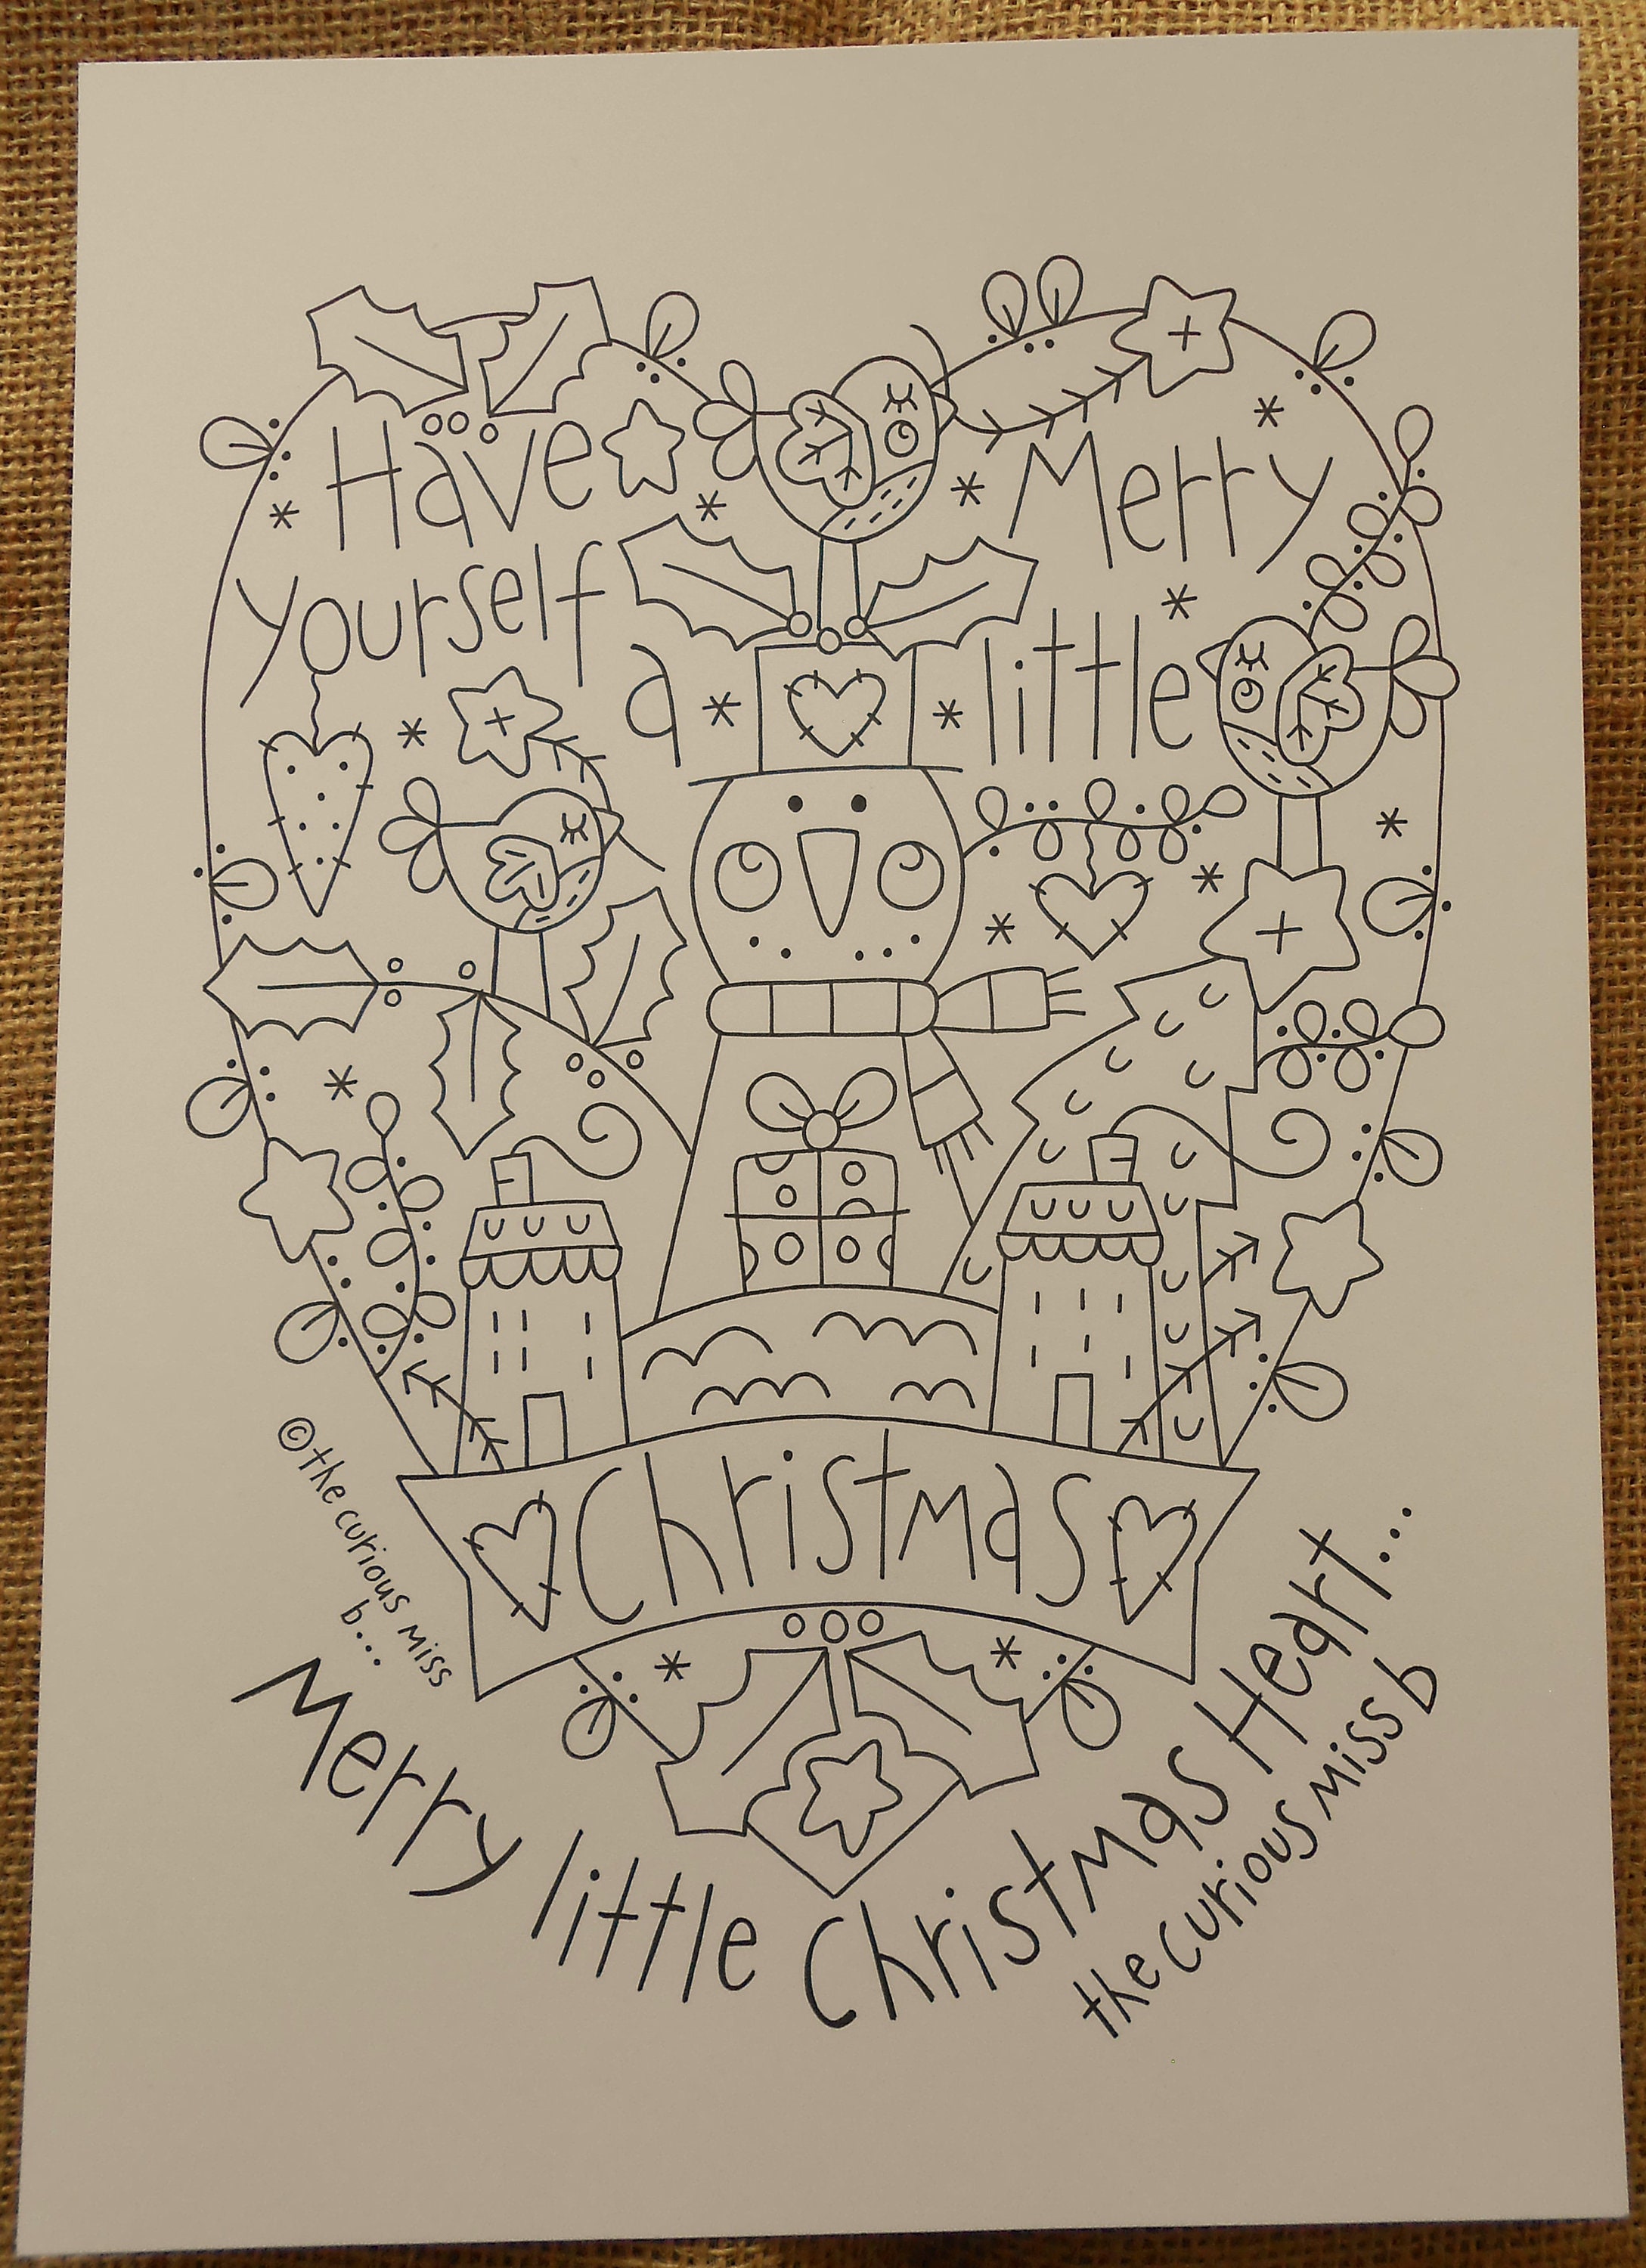 Have Merry
yourself
a little
Christmas
© the curious miss
b...
Merry little Christmas Heart...
the curious miss b